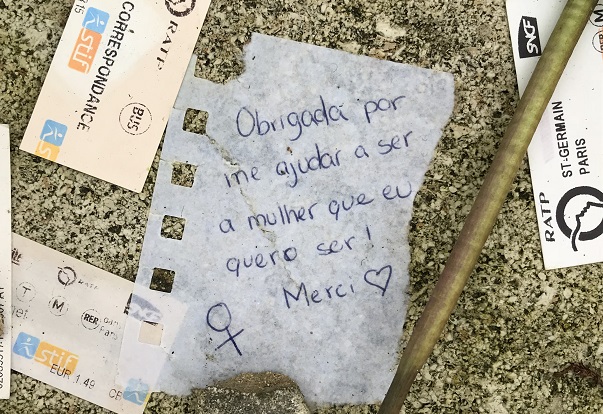 15
stif
RATP
CORRESPONDANCE
BUS
SNCF
M
RATP
ST-GERMAIN
PARIS
Obrigada por
me ajudar a ser
a mulher que eu
quero ser!
Merci ♡
♀
T
M
RER
stif
EUR 1.49